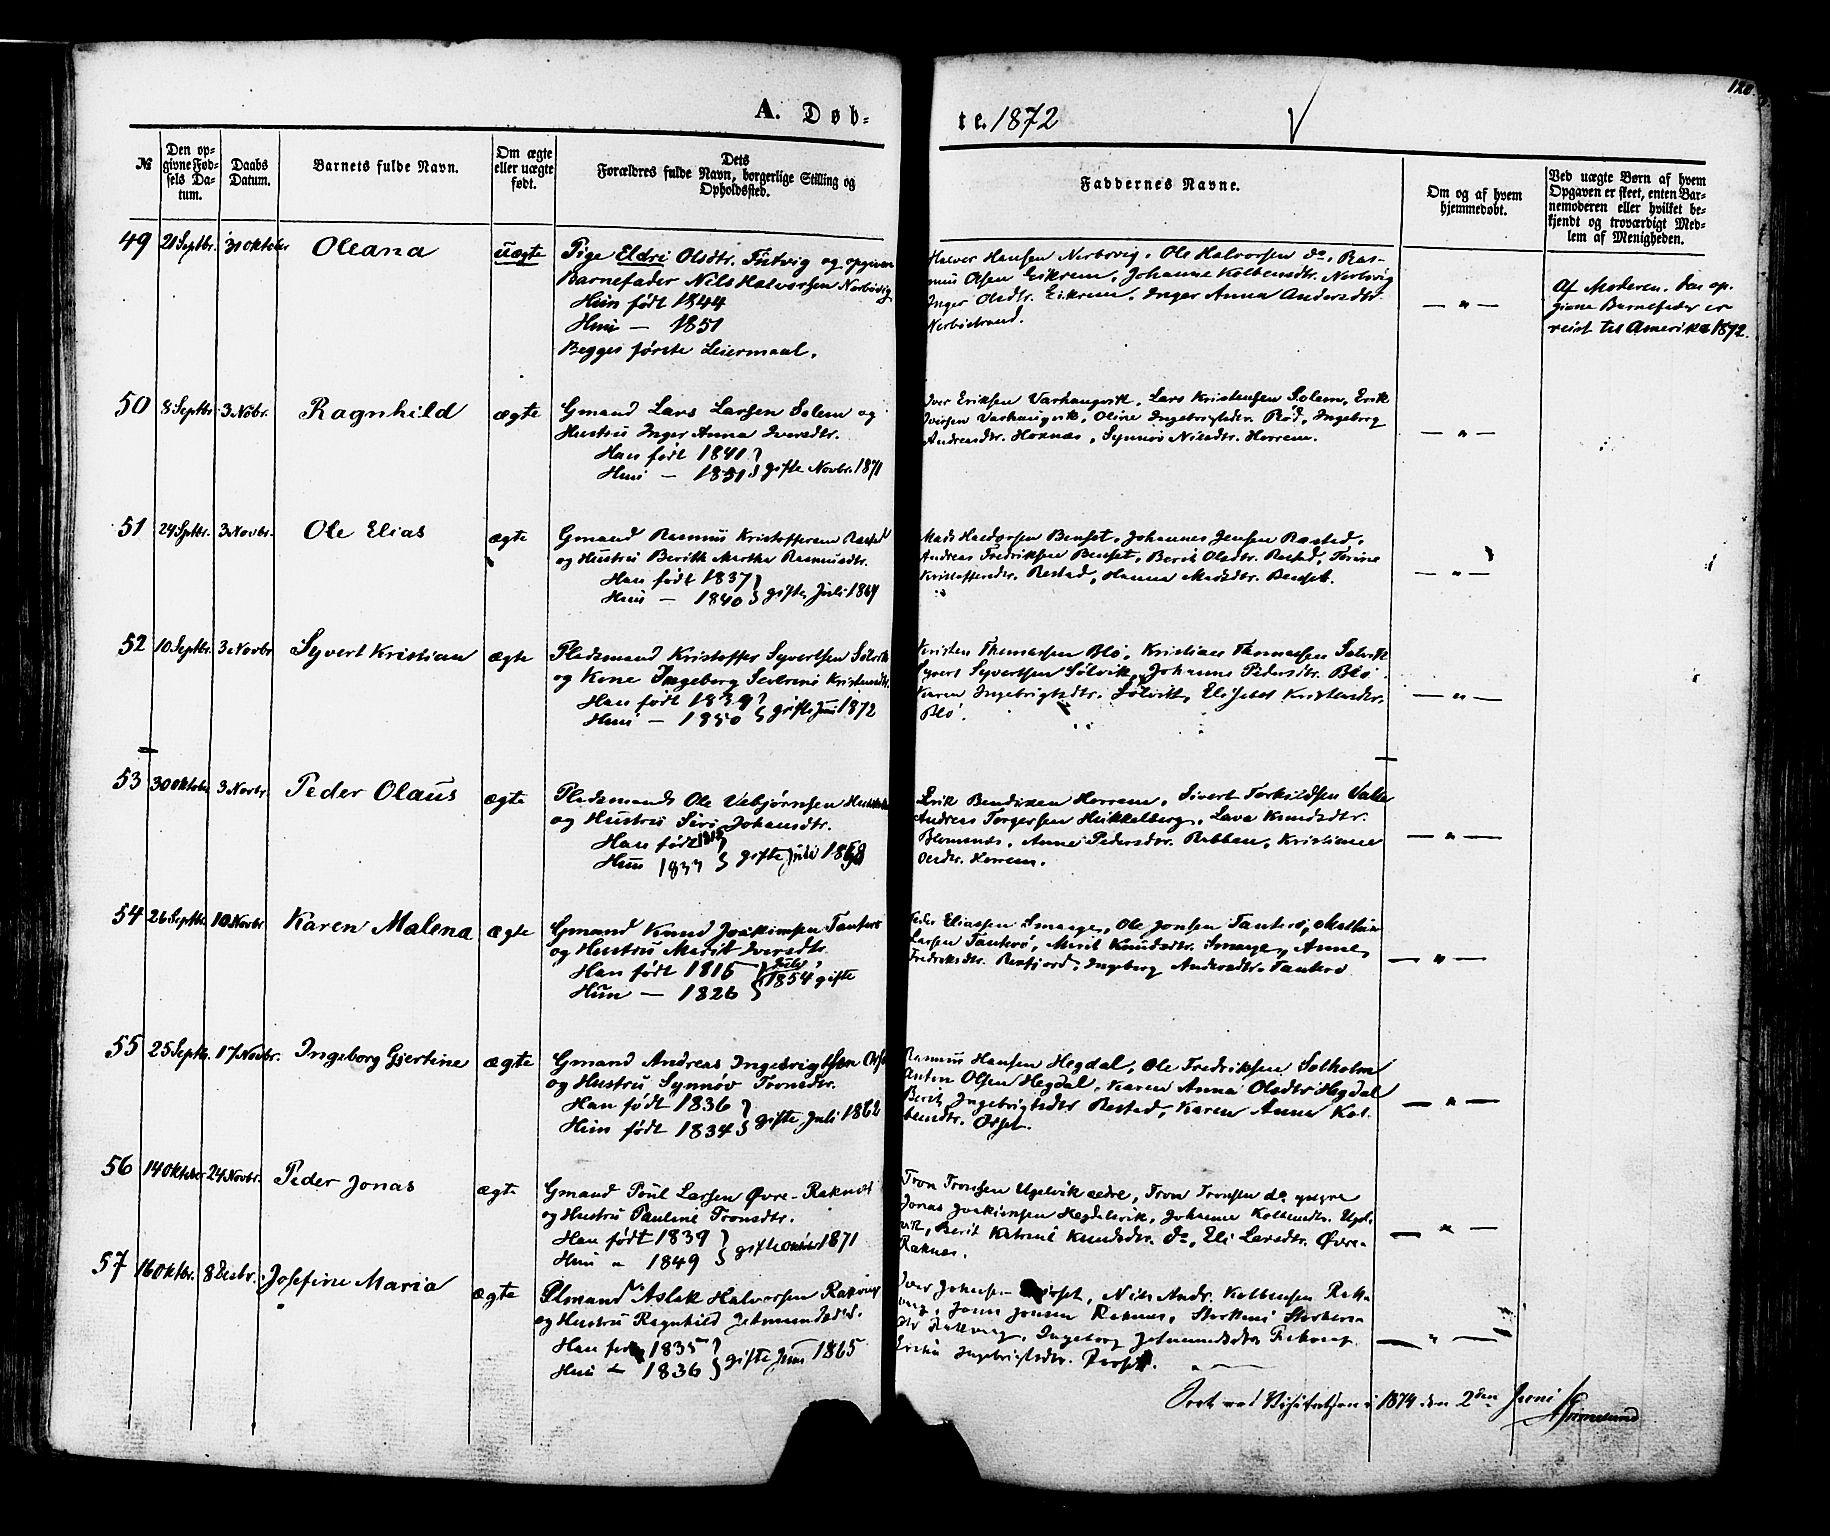 A. Døb-
te. 1872
120.
№
Den opgivne Fødsels Datum.
Daabs Datum.
Barnets fulde Navn.
Om ægte eller uægte født.
Dets Forældres fulde Navn, borgerlige Stilling og Opholdssted.
Faddernes Navne.
Om og af hvem hjemmedøbt.
Ved uægte Børn af hvem Opgaven er skeet, enten Barnemoderen eller hvilket bekjendt og troværdigt Medlem af Menigheden.
49 21 Septbr. 31 Oktober Oleana uægte
Pige Eldri Olsdtr. og opgiven
Barnefader Nils Halvorsen Nerbøvig
Hun født 1844
Han — 1851
Begges første Leiermaal.
Halvor Hansen Nerbøvig, Ole Halvorsen do, Ras-
mus Olsen Eikrem, Johanne Kolbensdtr. Nerbøvig
Inger Olsdtr. Eikrem, Inger Anna Andersdtr.
Nerbøstrand.
— " —
Af Moderen. Den op-
givne Barnefader er
reist til Amerika 1872.
50 8 Septbr. 3 Novbr. Ragnhild ægte
Gmand Lars Larsen Solem og
Hustru Inger Anna Iversdtr.
Han født 1841
Hun — 1851 gifte Novbr. 1871
Iver Eriksen Varhaugvik, Lars Kristensen Solem, Erik
Iversen Varhaugvik, Oline Ingebrigtsdtr. Rød, Ingeborg
Andreasdtr. Hoxnæs, Synnøv Nilsdtr. Herrem.
— " —
51 24 Septbr. 3 Novbr. Ole Elias ægte
Gmand Rasmus Kristoffersen Rested
og Hustru Berith Martha Rasmusdtr.
Han født 1837
Hun — 1840 gifte Juli 1869
Mads Haldorsen Benset, Johannes Jensen Rested,
Andreas Fredriksen Benset, Berit Olsdtr. Rested, Torine
Kristoffersdtr. Rested, Hanna Madsdtr. Benset.
— " —
52 10 Septbr. 3 Novbr. Syvert Kristian ægte
Pladsmand Kristoffer Syvertsen Sølvik
og Kone Ingeborg Severine Kristensdtr.
Han født 1839
Hun — 1850 gifte Juni 1872
Kristen Thomassen Blø, Kristian Thomassen Sølvik
Syvert Syvertsen Sølvik, Johanne Pedersdtr. Blø.
Karen Ingebrigtsdtr. Sølvik, Elisabet Kristensdtr.
Blø.
— " —
53 30 Oktober 3 Novbr. Peder Olaus ægte
Pladsmand Ole Vebjørnsen
og Hustru Siri Johansdtr.
Han født
Hun 1833 gifte Juli 1868
Erik Bendixen Herrem, Sivert Torkildsen Valle
Andreas Torgersen Heikkelberg, Lava Knudsdtr.
Blomsnes, Anne Pedersdtr. Rabben, Kristiane
Olsdtr. Herrem.
— " —
54 26 Septbr. 10 Novbr. Karen Malena ægte
Gmand Knud Joakimsen Tautrø
og Hustru Marit Iversdtr.
Han født 1815
Hun — 1826 Juli 1854 gifte
Peder Eliassen Smaage, Ole Jonsen Tautrø, Mathias
Larsen Tautrø, Marit Knudsdtr. Smaage, Anne
Fredriksdtr. Resfjord, Ingeborg Andersdtr. Tautrø
— " —
55 25 Septbr. 17 Novbr. Ingeborg Gjertine ægte
Gmand Andreas Ingebrigtsen Orset
og Hustru Synnøv Tronsdtr.
Han født 1836
Hun født 1834 gifte Juli 1862
Rasmus Hansen Hegdal, Ole Fredriksen Solholm
Anton Olsen Hegdal, Karen Anna Olsdtr Hegdal
Berit Ingebrigtsdtr Rested, Karen Anna Kol-
bensdtr. Orset.
— " —
56 14 Oktober 24 Novbr. Peder Jonas ægte
Gmand Poul Larsen Øvre-Raknes
og Hustru Pauline Tronsdtr.
Han født 1839
Hun " 1849 gifte Oktober 1871
Tron Tronsen Ugelvik ældre, Tron Tronsen do yngre
Jonas Joakimsen Hegdalsvik, Johanne Kolbensdtr. Ugel-
vik, Berit Katrine Knudsdtr. do, Eli Larsdtr. Øvre-
Raknes.
— " —
57 16 Oktbr. 8 Desbr. Josefine Maria ægte
Plmand Aslak Halvorsen Rakvaag
og Hustru Ragnhild Jetmundsdtr.
Han født 1835
Hun — 1836 gifte Juni 1865
Iver Johansen Nils Andr. Kolbensen Rak-
vaag, Jonn Jonsen Raknes,
dtr Rakvaag, Ingeborg Jetmundsdtr Rakvaag.
Ingebrigtsdtr.
— " —
Seet ved Visitatsen i 1874 den 2den Juni